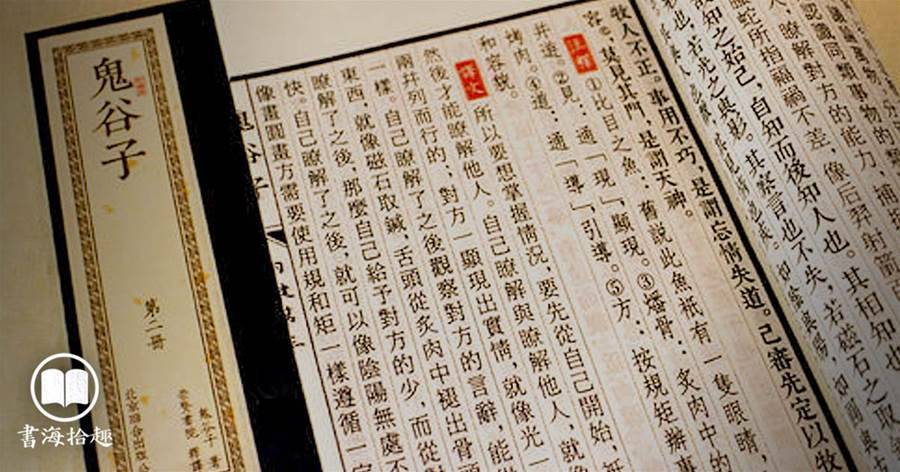 認識同類事物的
人，瞭解對方的能力，補
蛇所指禍福不差，像后羿射箭
故知之始己，自知而後知人也。其相知也
也，若光之與影。其察言也不失，若磁石之取
牧人不正。事用不巧，是謂忘情失道。己審先定以牧
容。莫見其門，是謂天神。
注釋 ①比目之魚：舊說此魚祇有一隻眼睛，
並遊。②見：通「現」，顯現。③燔骨：炙肉中的
烤肉。④道：通「導」，引導。⑤方：按規矩辦
和容貌。
譯文 所以要想掌握情況，要先從自己開始，
然後才能瞭解他人。自己瞭解與瞭解他人，就
兩并列而行的；對方一顯現出實情，就像光一
一樣。自己瞭解了之後觀察對方的言辭，能從
東西，就像磁石取鍼，舌頭從炙肉中褪出骨
瞭解了之後，那麼自己給予對方的少，而從對
快。自己瞭解了之後，就可以像陰陽無處不
像畫圓畫方需要使用規和矩一樣遵循一定
鬼谷子
第二冊
書海拾趣